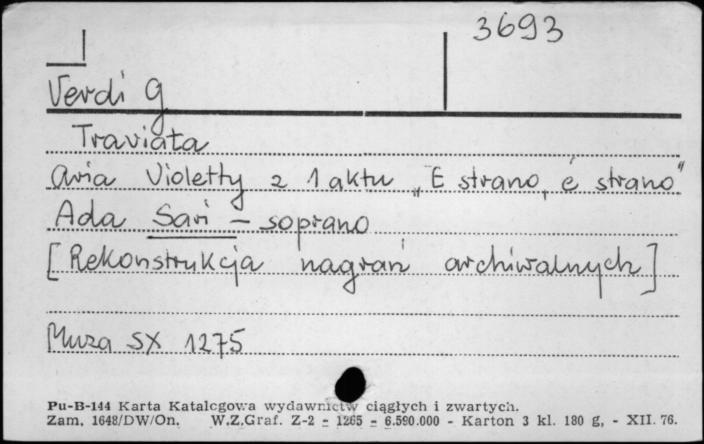 3693
Verdi G
Traviata
Aria Violetty z 1 aktu „E strano, é strano"
Ada Sari – soprano
[Rekonstrukcja nagrań archiwalnych]
Muza SX 1275
Pu-B-144 Karta Katalogowa wydawnictw ciągłych i zwartych.
Zam. 1648/DW/On. W.Z.Graf. Z-2 - 1265 - 6.590.000 - Karton 3 kl. 180 g, - XII. 76.